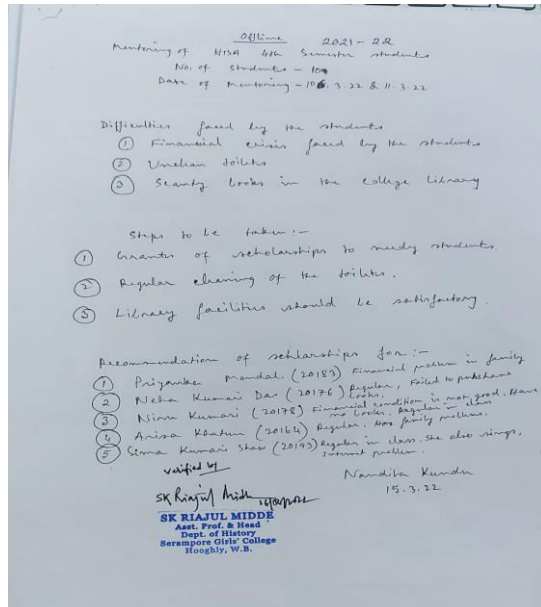 Offline 2021-22
Mentoring of HISA 4th Semester students
No. of students - 10
Date of Mentoring - 10.3.22 & 11.3.22
Difficulties faced by the students
① Financial crisis faced by the students
② Unclean toilets
③ Scanty books in the college Library
Steps to be taken :-
① Grants of scholarships to needy students.
② Regular cleaning of the toilets.
③ Library facilities should be satisfactory.
Recommendation of scholarships for :-
① Priyanka Mandal. (20183) Financial problem in family
② Neha Kumari Das (20176) Regular, Failed to purchase books.
③ Nisu Kumari (20178) Financial condition is not good. Have no books. Regular in class
④ Arisa Khatun (20164) Regular. Has family problem.
⑤ Sima Kumari Shaw (20193) Regular in class. She also sings. Internet problem.
Verified by
Nandita Kundu
15.3.22
SK Riajul Midde
SK RIAJUL MIDDE
Asst. Prof. & Head
Dept. of History
Serampore Girls' College
Hooghly, W.B.